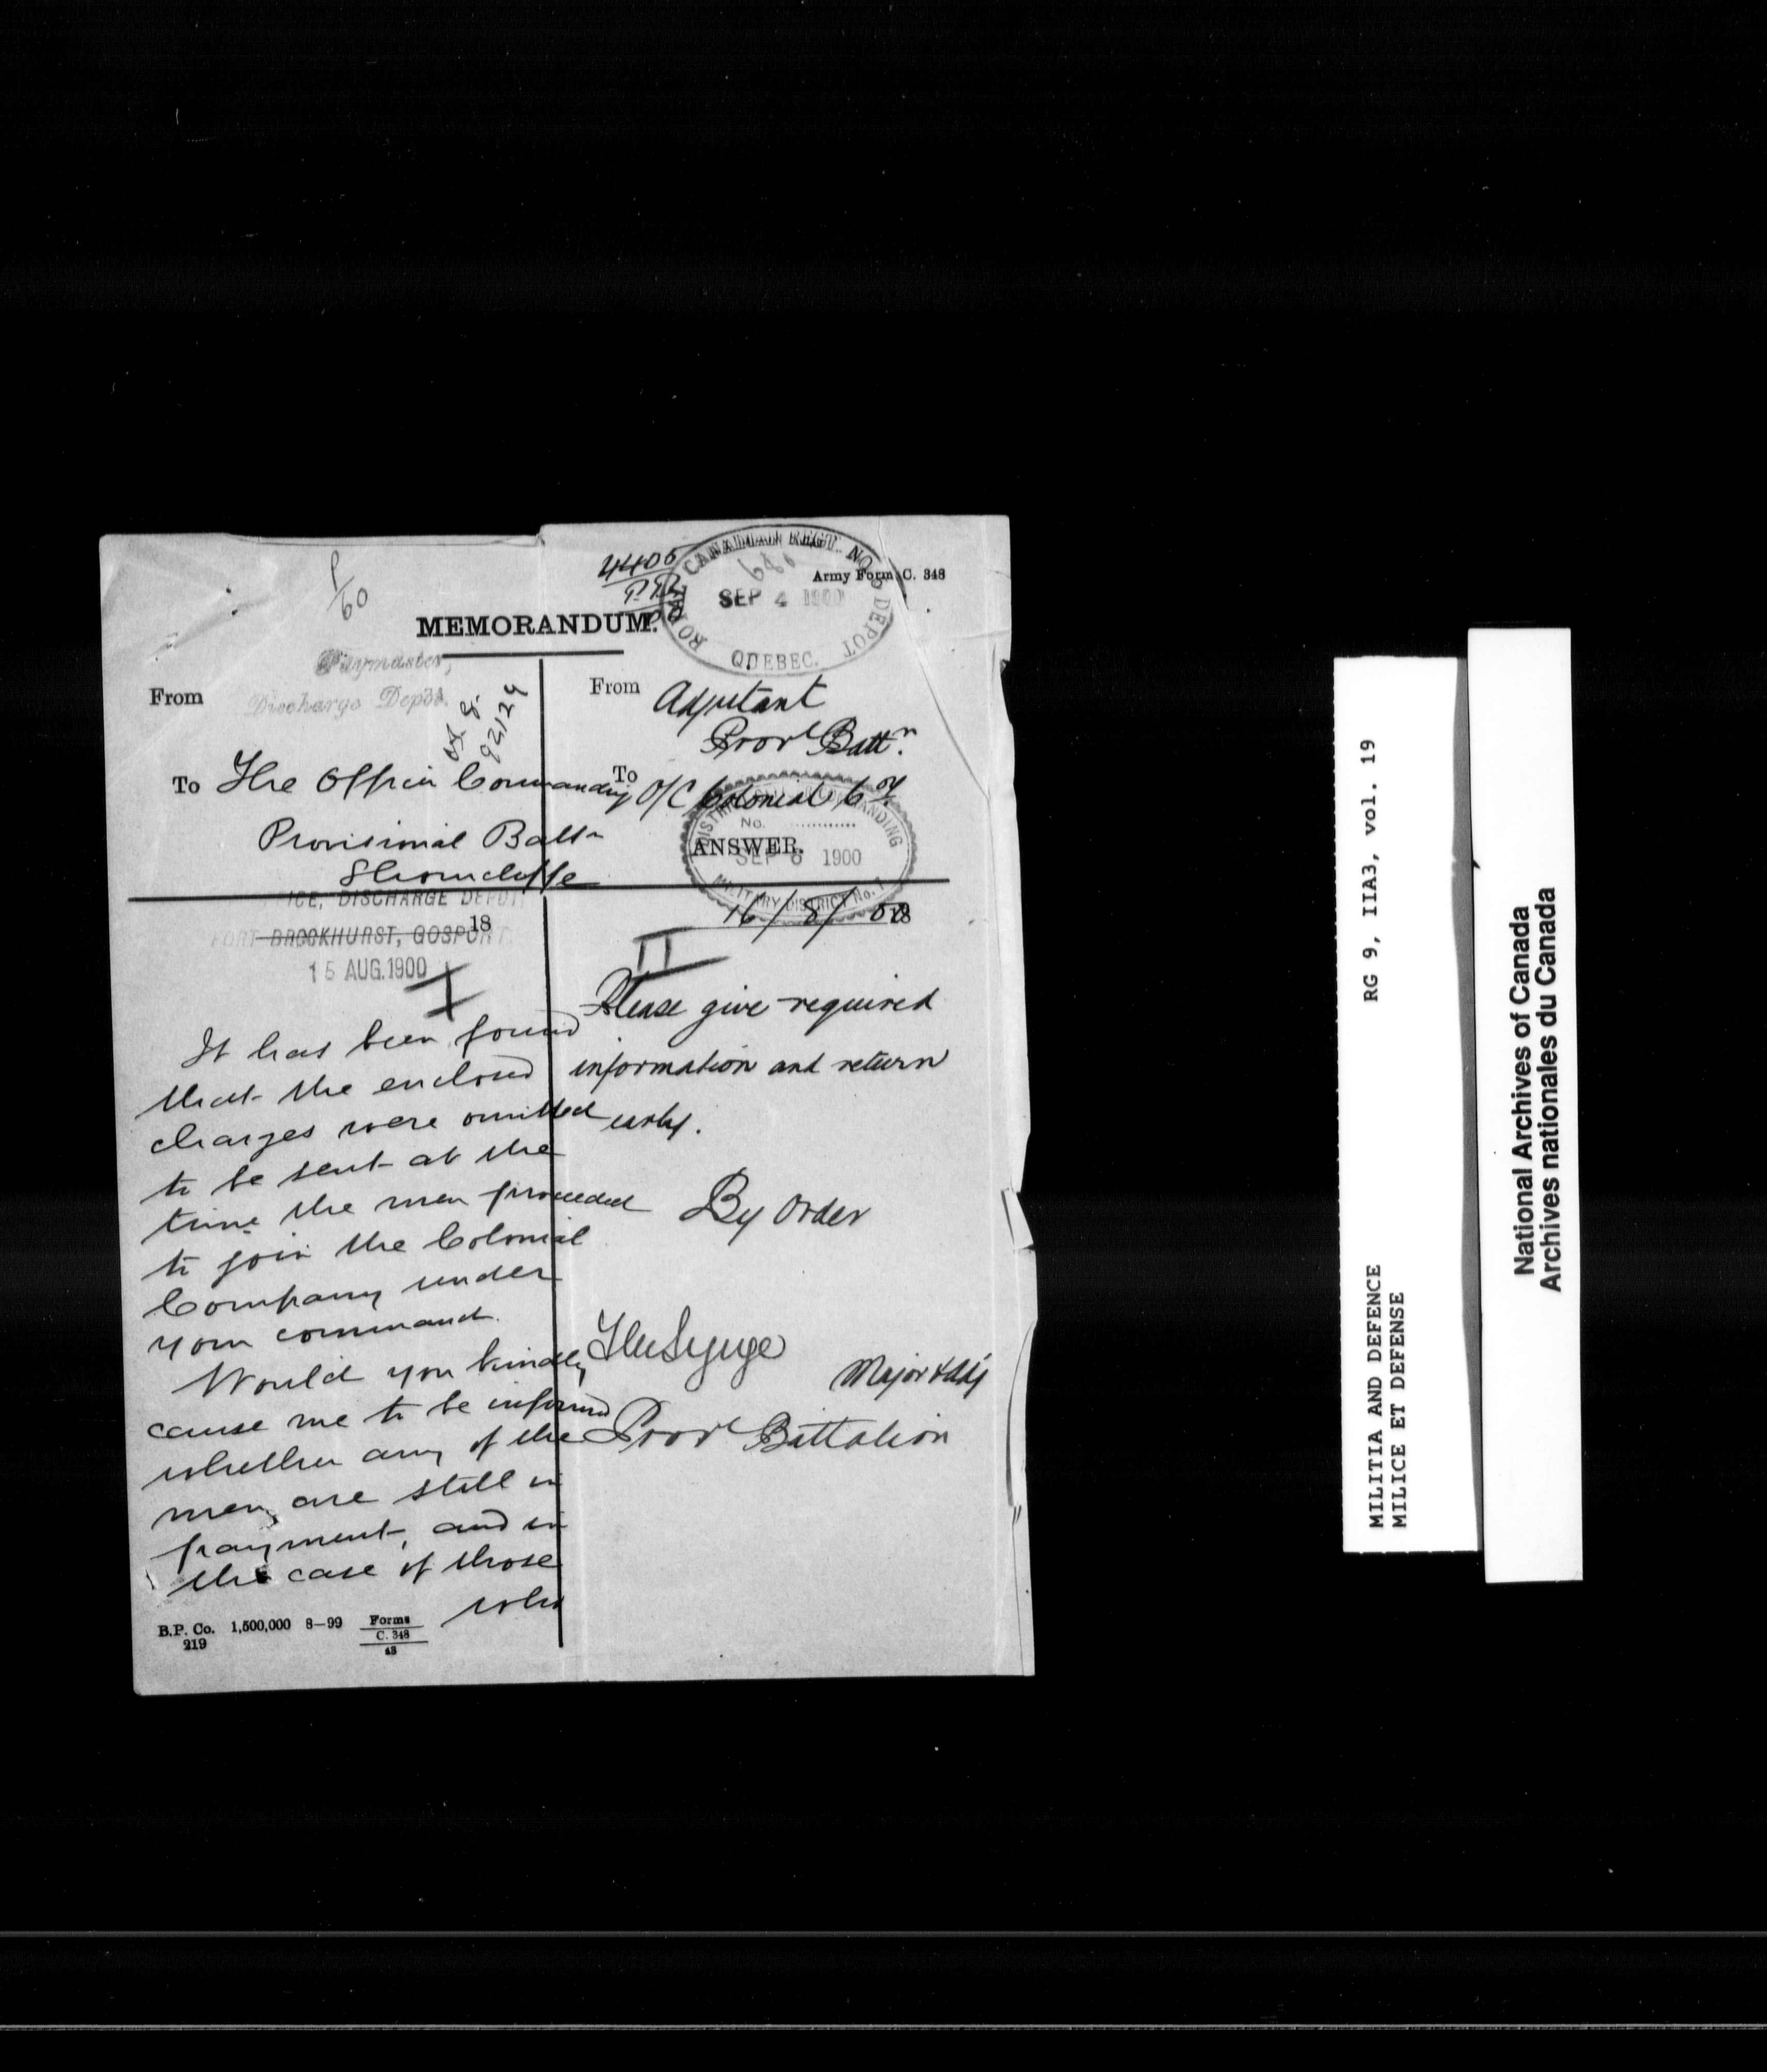 P/60
4406
ROYAL CANADIAN REGT. NO. DEPOT
SEP 4 1900
QUEBEC.
Army Form C. 348
MEMORANDUM.
From
Paymaster,
Discharge Depôt.
92124
To The Officer Commanding
Provisional Battn
Shorncliffe
ICE, DISCHARGE DEPOT
18
FORT BROCKHURST, GOSPORT
15 AUG. 1900
I
It has been found
that the enclosed
charges were omitted
to be sent at the
time the men proceeded
to join the Colonial
Company under
your command.
Would you kindly
cause me to be informed
whether any of the
men are still in
payment, and in
the case of those
who
B.P. Co. 1,500,000 8—99 Forms
219 C. 348
48
From Adjutant
Provl Battn.
To O/C Colonial Coy.
DISTRICT COMMANDING
No.
ANSWER.
SEP 6 1900
MILITARY DISTRICT No.
16/8/00
18
II
Please give required
information and return
early.
By Order
Major & Adj
Provl Battalion
MILITIA AND DEFENCE RG 9, IIA3, vol. 19
MILICE ET DEFENSE
National Archives of Canada
Archives nationales du Canada